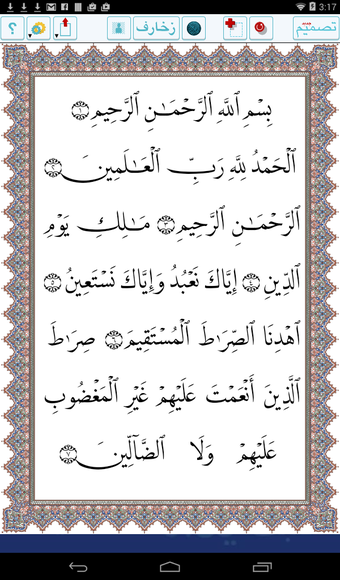 3:17
؟ زخارف تصميم
بِسْمِ ٱللَّهِ ٱلرَّحْمَـٰنِ ٱلرَّحِيمِ ١
ٱلْحَمْدُ لِلَّهِ رَبِّ ٱلْعَـٰلَمِينَ ٢
ٱلرَّحْمَـٰنِ ٱلرَّحِيمِ ٣ مَـٰلِكِ يَوْمِ
ٱلدِّينِ ٤ إِيَّاكَ نَعْبُدُ وَإِيَّاكَ نَسْتَعِينُ ٥
ٱهْدِنَا ٱلصِّرَٰطَ ٱلْمُسْتَقِيمَ ٦ صِرَٰطَ
ٱلَّذِينَ أَنْعَمْتَ عَلَيْهِمْ غَيْرِ ٱلْمَغْضُوبِ
عَلَيْهِمْ وَلَا ٱلضَّآلِّينَ ٧